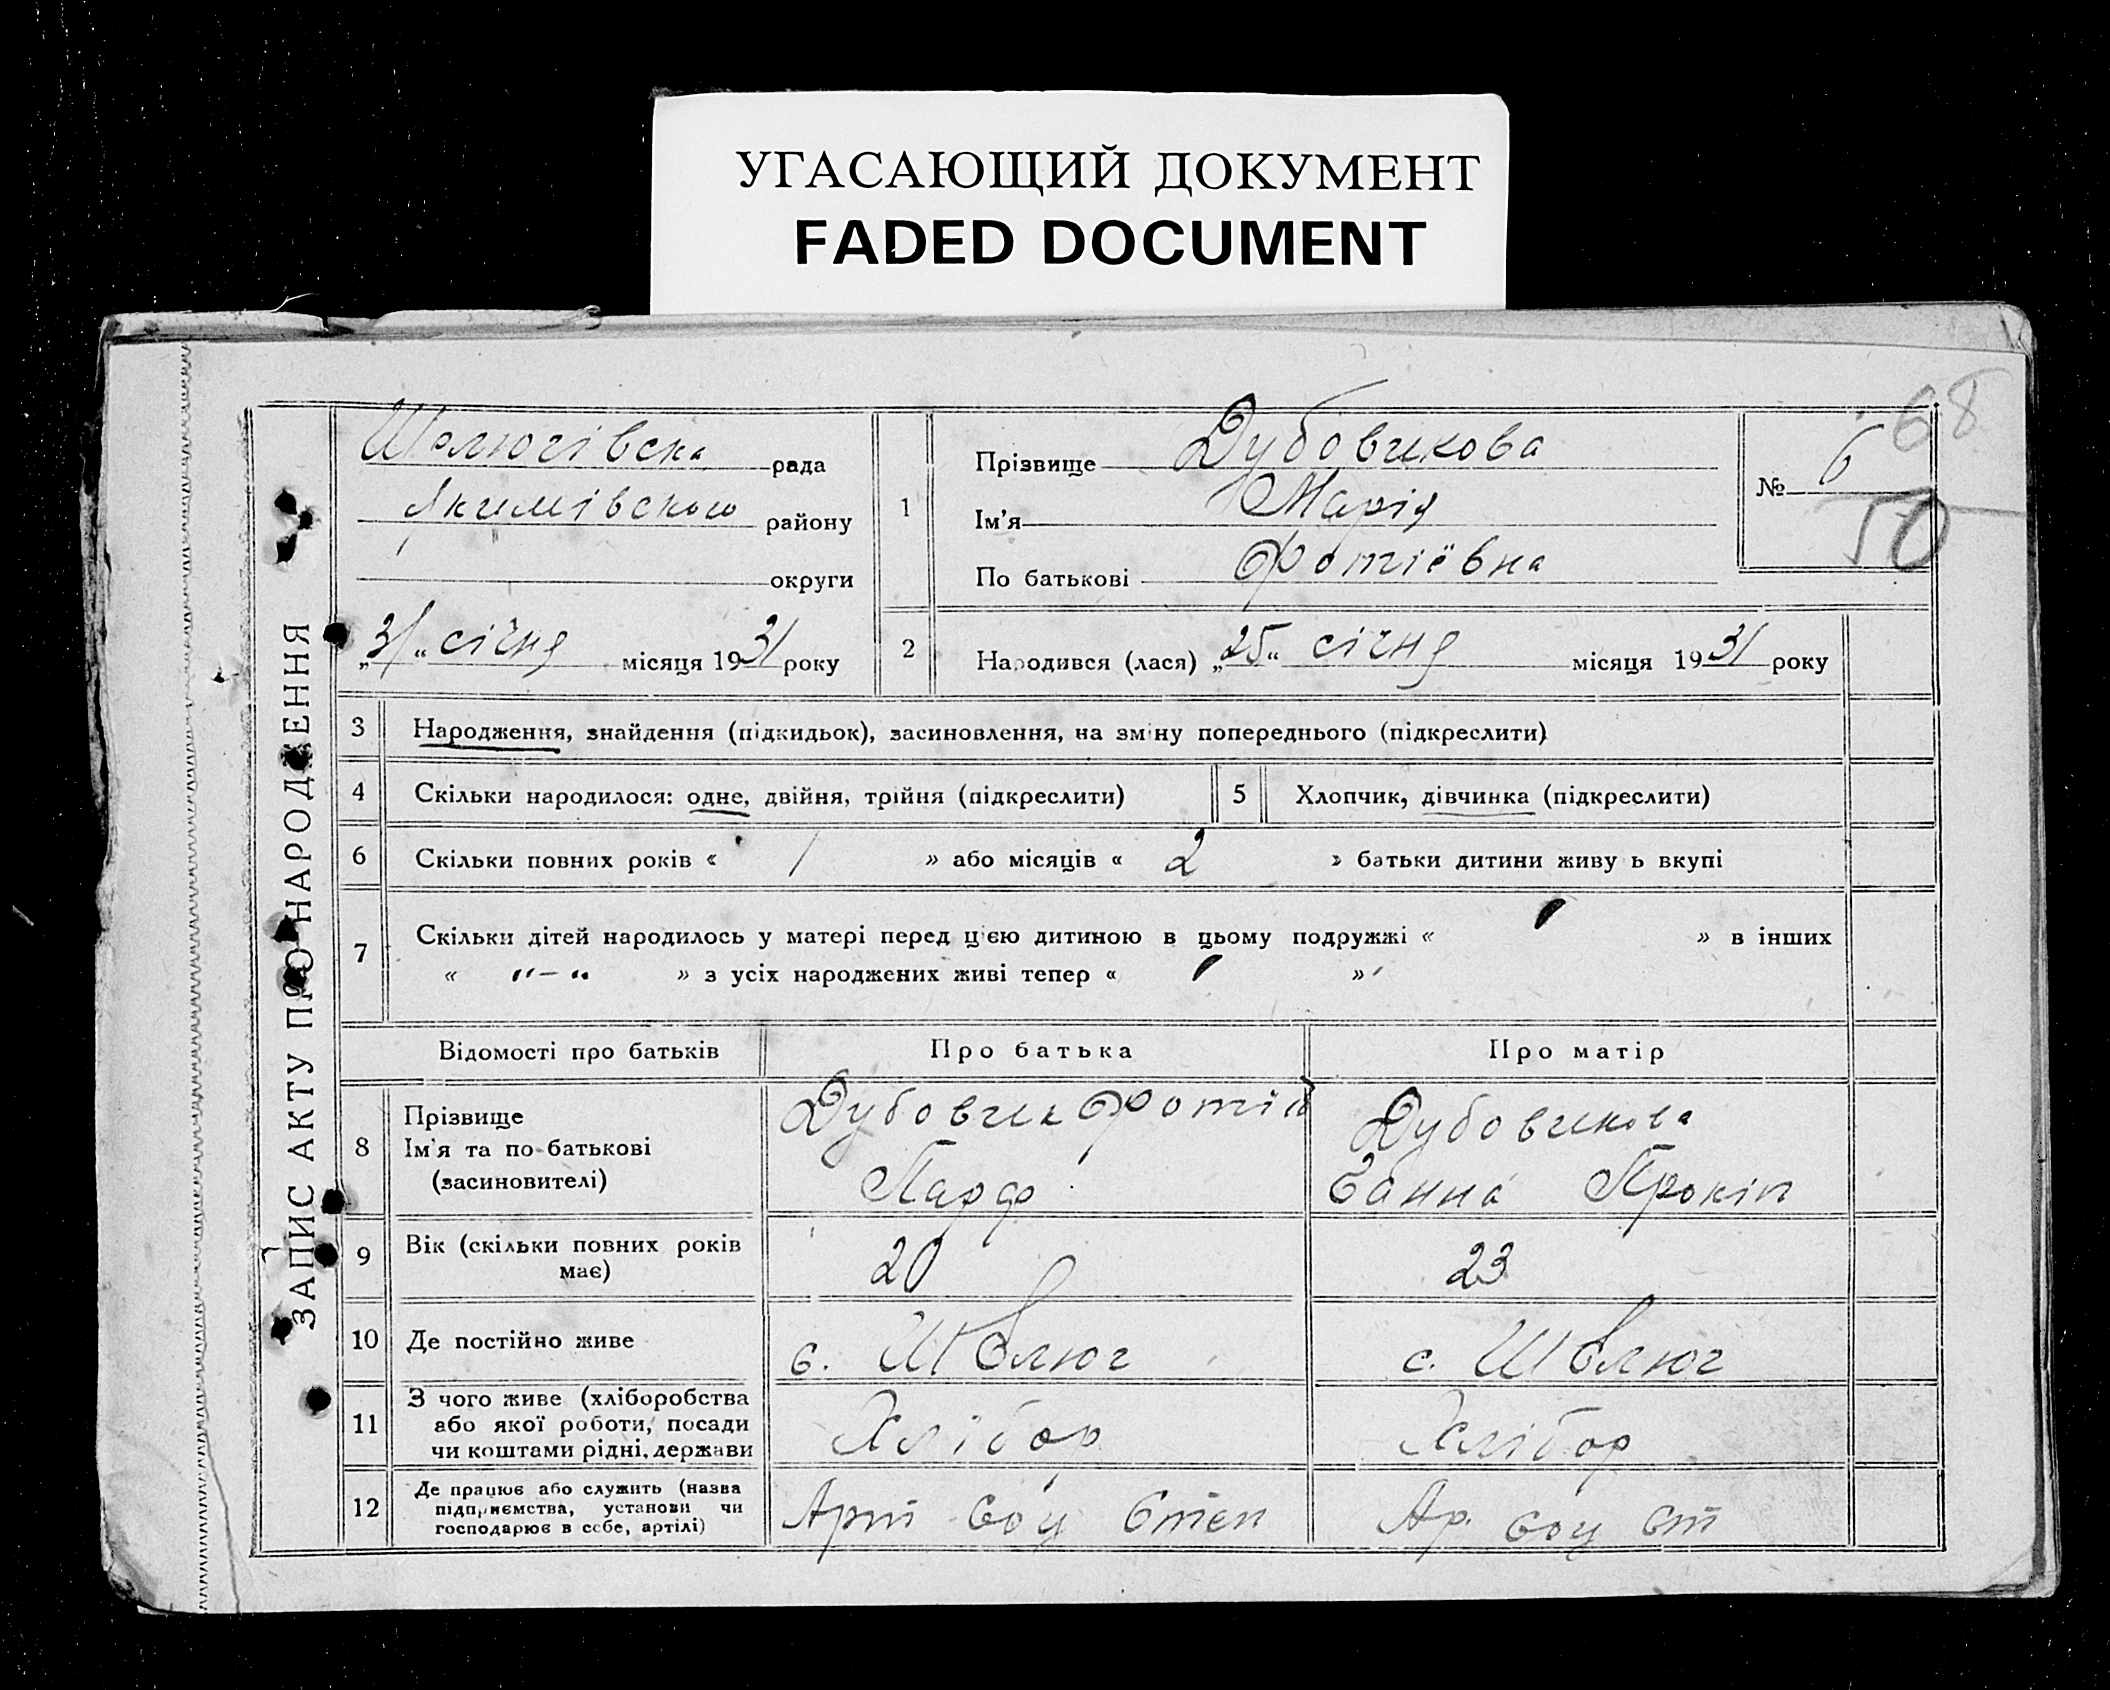 УГАСАЮЩИЙ ДОКУМЕНТ
FADED DOCUMENT
68
ЗАПИС АКТУ ПРО НАРОДЖЕННЯ
Шелюгівська рада
Якимівського району
округи
„31“ січня місяця 1931 року
1
Прізвище Дубовикова
Ім'я Марія
По батькові Фотіёвна
№ 6
50
2 Народився (лася) „25“ січня місяця 1931 року
3 Народження, знайдення (підкидьок), засиновлення, на зміну попереднього (підкреслити)
4 Скільки народилося: одне, двійня, трійня (підкреслити)
5 Хлопчик, дівчинка (підкреслити)
6 Скільки повних років « 1 » або місяців « 2 » батьки дитини живуть вкупі
7 Скільки дітей народилось у матері перед цією дитиною в цьому подружжі « » в інших
« "–" » з усіх народжених живі тепер « »
Відомості про батьків Про батька Про матір
8 Прізвище
Ім'я та по-батькові
(засиновителі)
Дубовик Фотій
Парф
Дубовикова
Ганна Прокіп
9 Вік (скільки повних років
має)
20
23
10 Де постійно живе
с. Шелюг
с. Шелюг
11 З чого живе (хліборобства
або якої роботи, посади
чи коштами рідні, держави
Хлібор
Хлібор
12 Де працює або служить (назва
підприємства, установи чи
господарює в себе, артілі)
Арт Соц Степ
Ар. Соц Ст